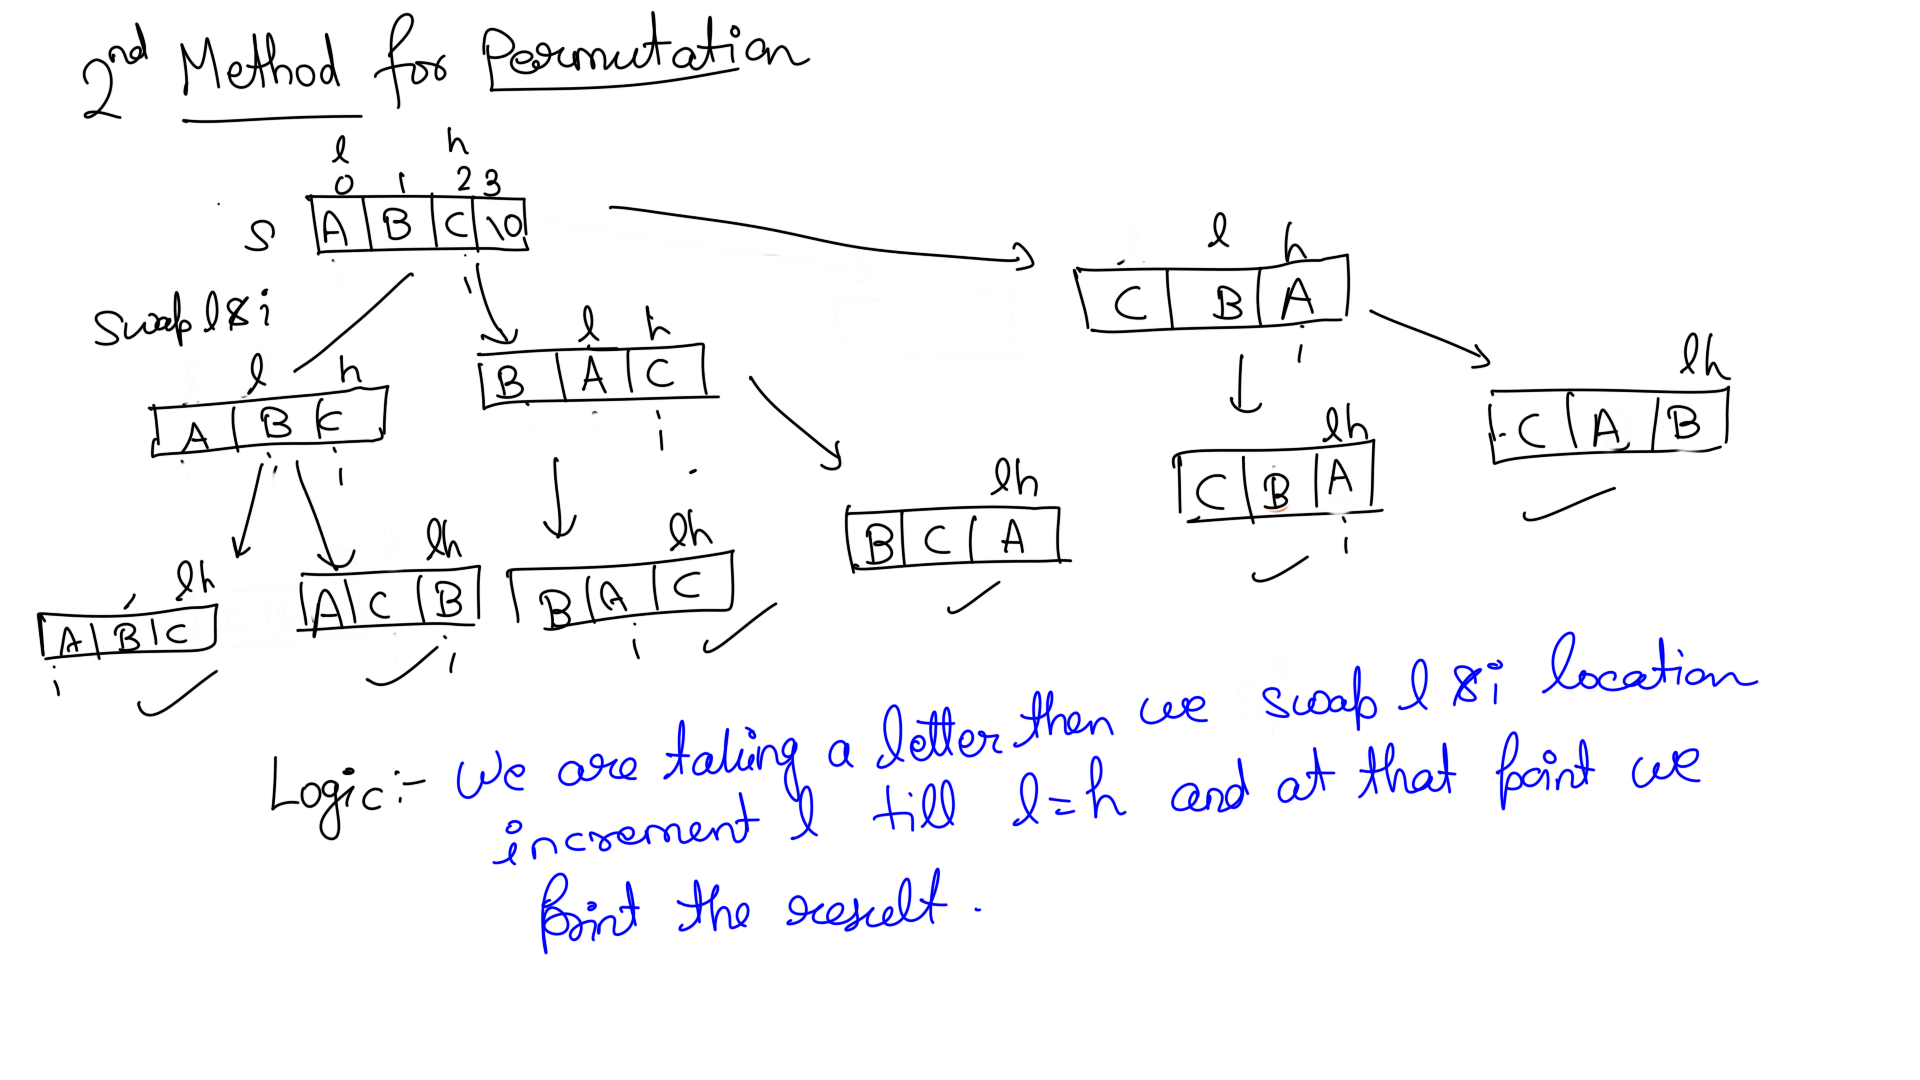 2nd Method for Permutation
l h
0 1 2 3
S A B C \0
i
Swap l & i
l h
C B A
i
l h
B A C
i
l h
A B C
i
lh
C A B
lh
C B A
i
lh
B C A
lh
A B C
i
lh
A C B
i
lh
B A C
i
Logic:- We are taking a letter then we swap l & i location
increment l till l=h and at that point we
print the result.